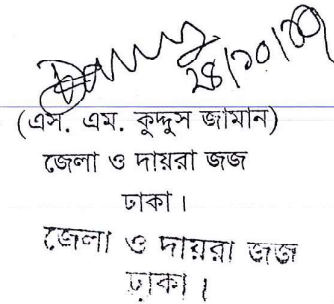 ২৪/১০/১৭
(এস. এম. কুদ্দুস জামান)
জেলা ও দায়রা জজ
ঢাকা।
জেলা ও দায়রা জজ
ঢাকা।